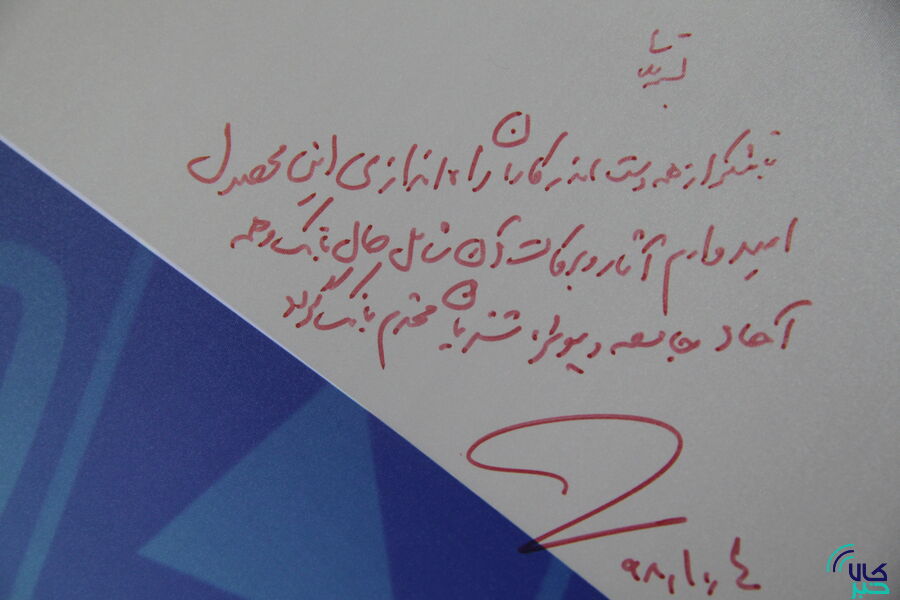 باتشکر از همه دست اندرکاران راه اندازی این محصول
امیدوارم آثار و برکات آن شامل حال بانک و همه
آحاد جامعه و بویژه مشتریان محترم بانک گردد
۹۸،۱۰،۴
کالا
خبر